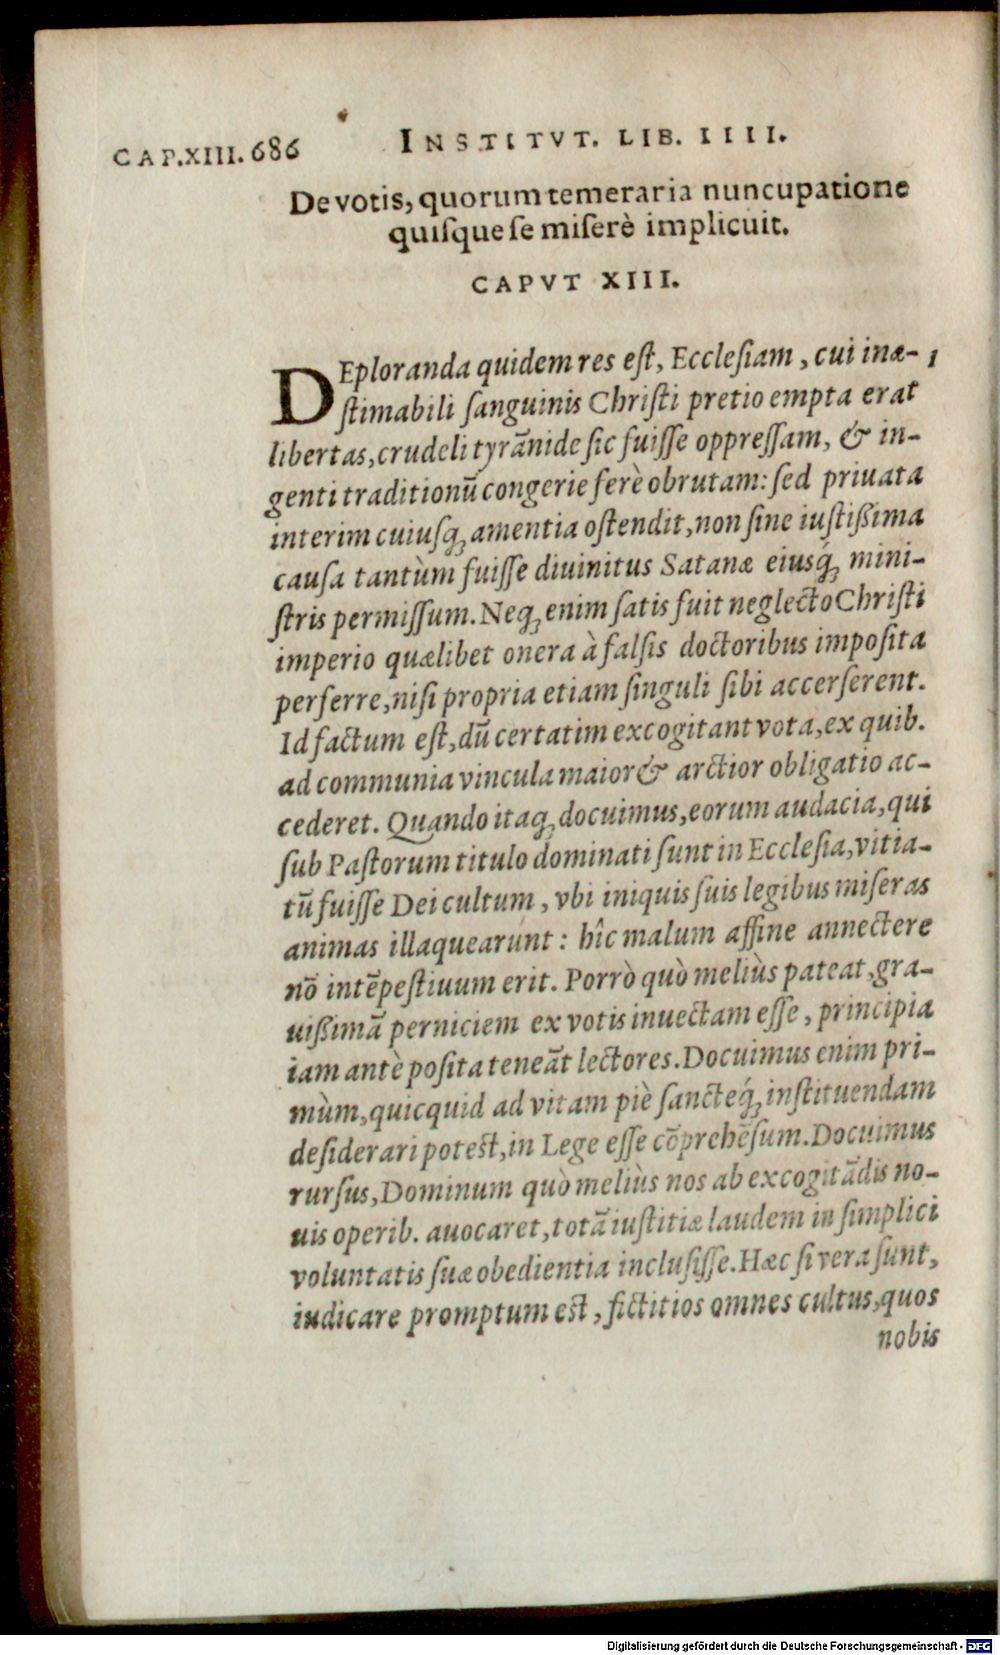 CAP.XIII. 686 INSTITVT. LIB. IIII.
De votis, quorum temeraria nuncupatione
quiſque ſe miſerè implicuit.
CAPVT XIII.
DEploranda quidem res eſt, Eccleſiam, cui inæ- 1
ſtimabili ſanguinis Chriſti pretio empta erat
libertas, crudeli tyrãnide ſic fuiſſe oppreſſam, & in-
genti traditionũ congerie ferè obrutam: ſed priuata
interim cuiuſq; amentia oſtendit, non ſine iuſtißima
cauſa tantùm fuiſſe diuinitus Satanæ eiusq́; mini-
ſtris permiſſum. Neq; enim ſatis fuit neglecto Chriſti
imperio quælibet onera à falſis doctoribus impoſita
perferre, niſi propria etiam ſinguli ſibi accerſerent.
Id factum eſt, dũ certatim excogitant vota, ex quib.
ad communia vincula maior & arctior obligatio ac-
cederet. Quando itaq; docuimus, eorum audacia, qui
ſub Paſtorum titulo dominati ſunt in Eccleſia, vitia-
tũ fuiſſe Dei cultum, vbi iniquis ſuis legibus miſeras
animas illaquearunt: hîc malum affine annectere
nõ intẽpeſtiuum erit. Porrò quò meliùs pateat, gra-
uißimã perniciem ex votis inuectam eſſe, principia
iam antè poſita teneãt lectores. Docuimus enim pri-
mùm, quicquid ad vitam piè ſancteq́; inſtituendam
deſiderari poteſt, in Lege eſſe cõprehẽſum. Docuimus
rurſus, Dominum quò meliùs nos ab excogitãdis no-
uis operib. auocaret, totã iuſtitiæ laudem in ſimplici
voluntatis ſuæ obedientia incluſiſſe. Hæc ſi vera ſunt,
iudicare promptum eſt, fictitios omnes cultus, quos
nobis
Digitalisierung gefördert durch die Deutsche Forschungsgemeinschaft - DFG